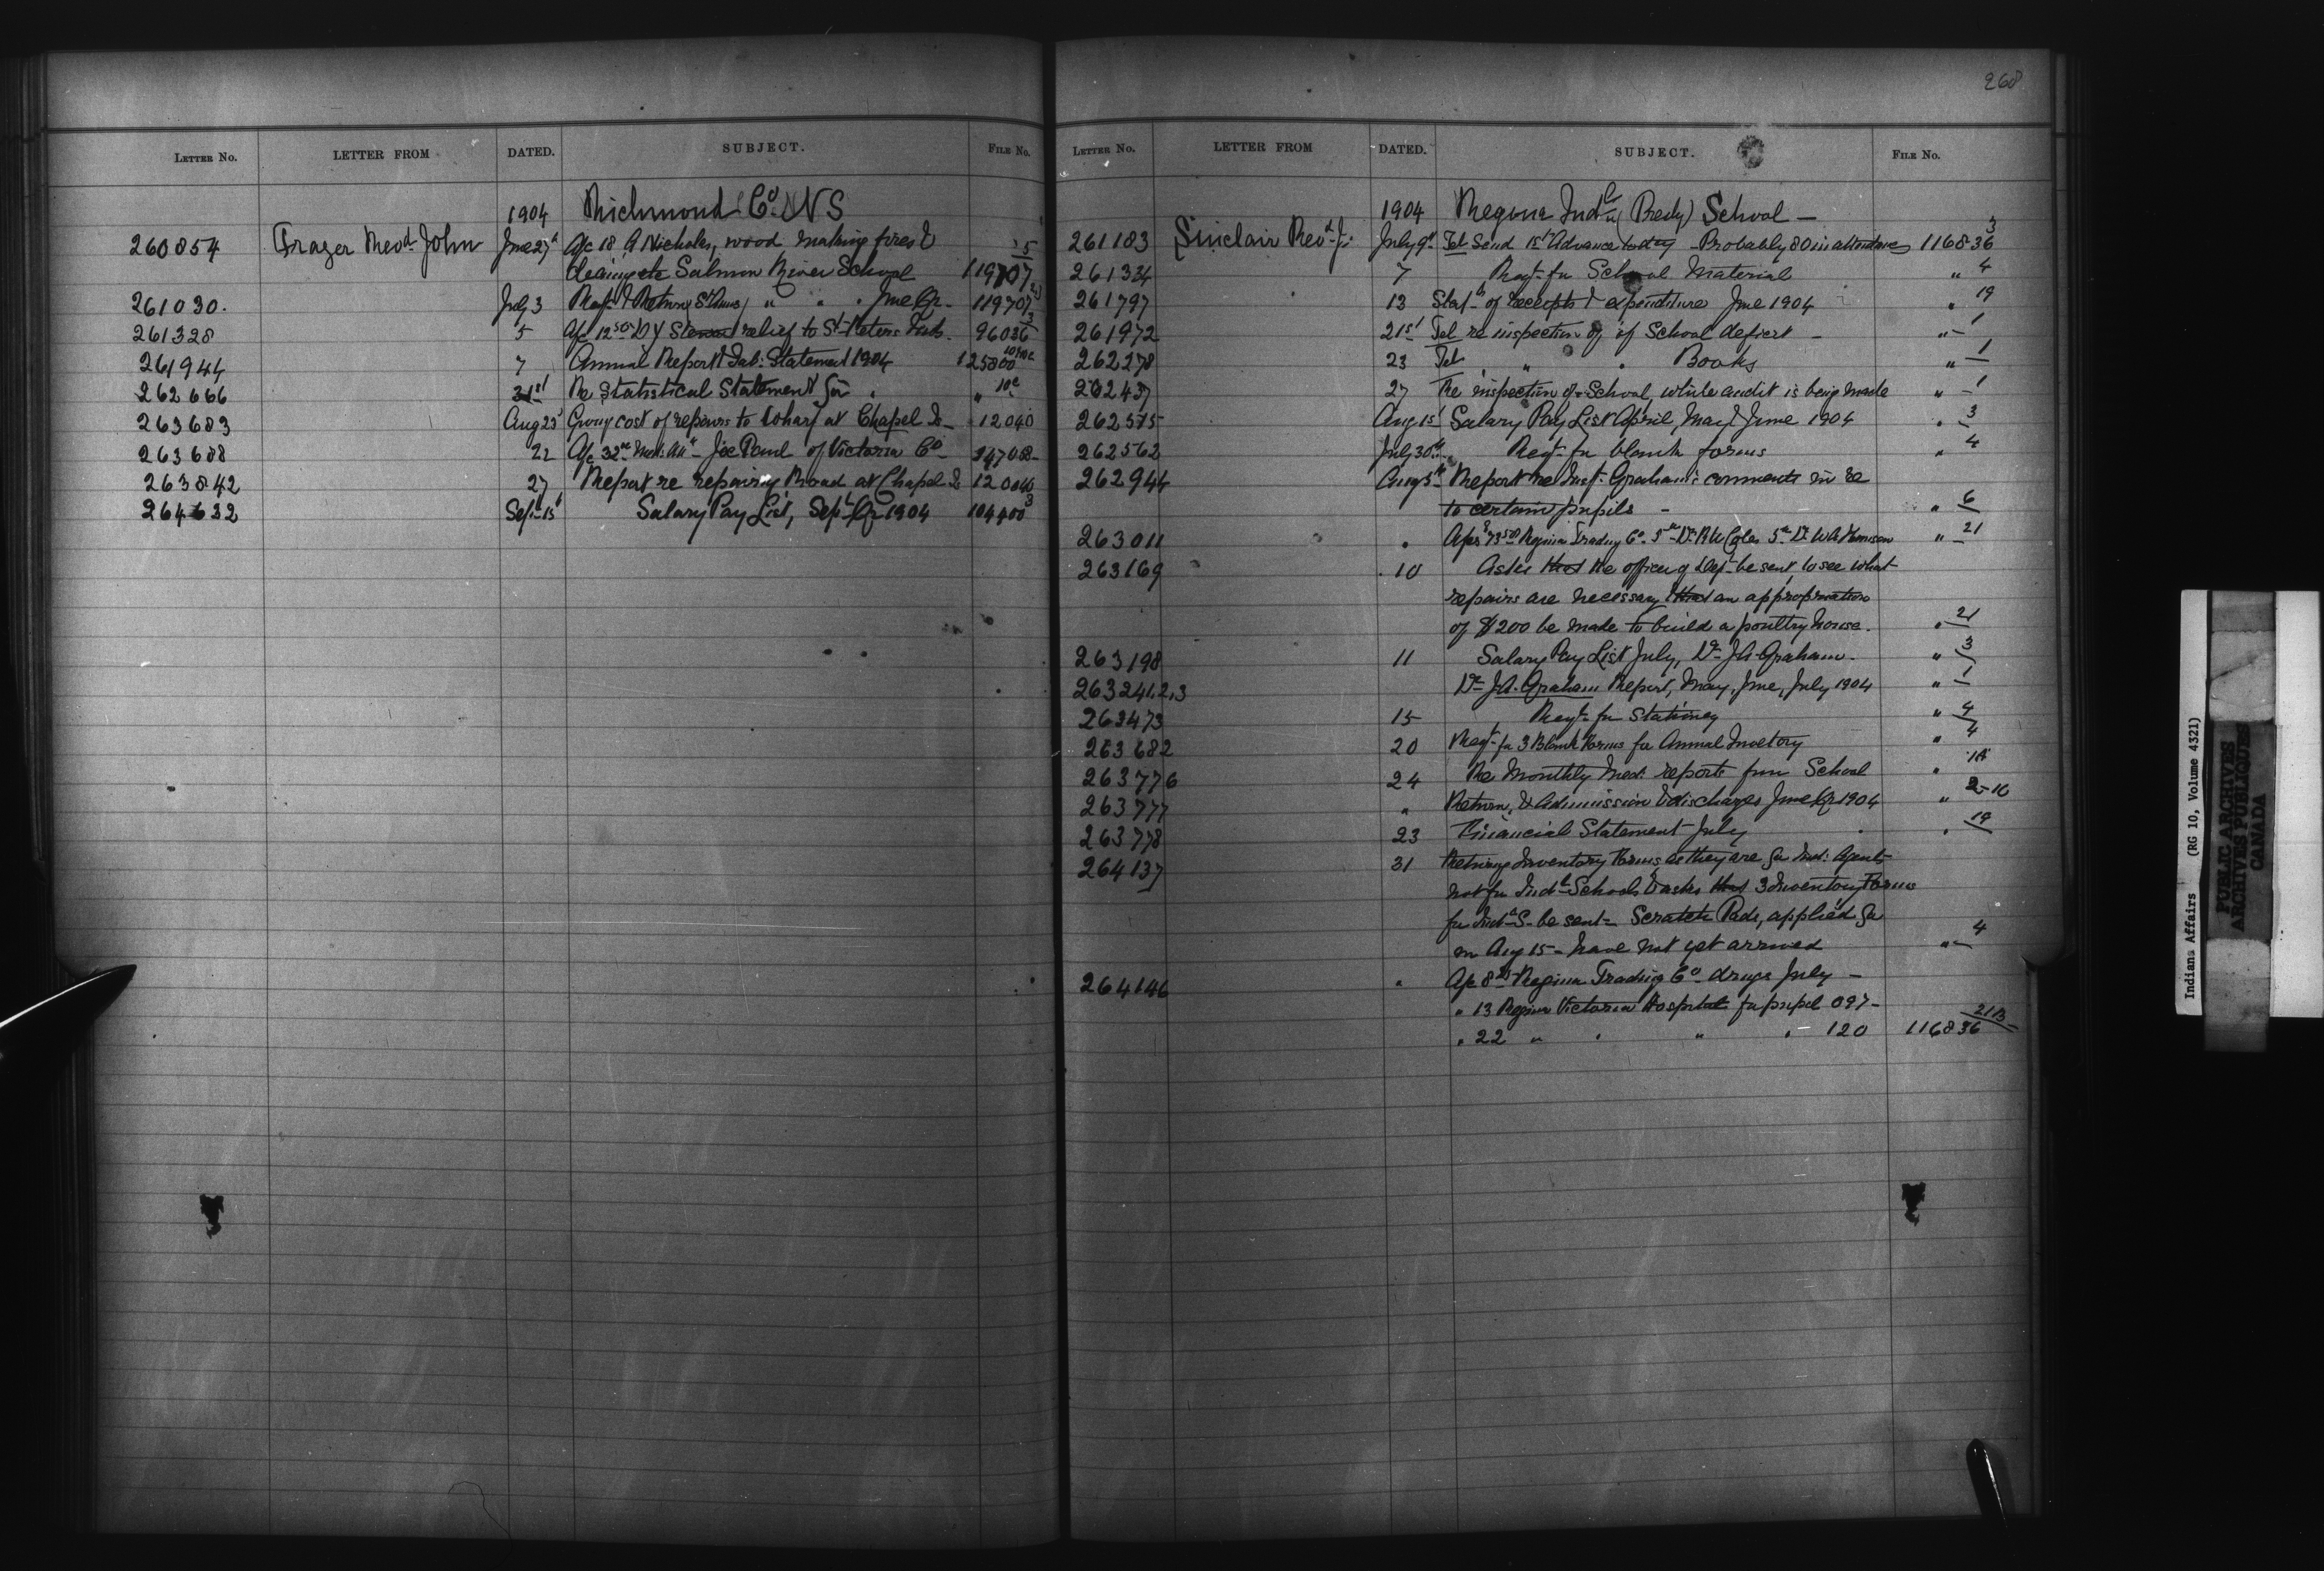 268
LETTER NO. LETTER FROM DATED. SUBJECT. FILE NO.
1904 Richmond Co NS
260854 Frazer Revd John June 27th A/c 18 A Nicholas, wood making fires &
cleaning etc Salmon River School 119707 5
261030. July 3 Rect & Return St Anns " " " June Qr. 119707
261328 5 A/c 12 50 Dr relief to St Peters Inds. 96036 3
261944 7 Annual Report & Tab: Statement 1904 125800
262666 21st Re Statistical Statement for " " 10c
263683 Aug 23 Giving cost of repairs to Wharf at Chapel Is 12040
263688 22 A/c 32 Med: Att Joe Paul of Victoria Co 147058
263842 27 Report re repairing Road at Chapel Is 12040
264632 Sept 15 Salary Pay List, Sept Qr 1904 104400 3
LETTER NO. LETTER FROM DATED. SUBJECT. FILE NO.
1904 Regina Indl (Presby) School —
261183 Sinclair Revd J. July 9th Tel Send 1st Advance today Probably 80 in attendance 116836 3
261334 7 Reqt for School Material " 4
261797 13 Statt of receipts & expenditure June 1904 " 19
261972 21st Tel re inspection of School deficit — " 1
262278 23 Tel " " Books " 1
262437 27 Re inspection of School, while audit is being made " 1
262575 Aug 1st Salary Pay List April, May & June 1904 " 3
262562 July 30th Reqt for blank forms " 4
262944 Aug 5th Report re Inst. Graham's comments in re
to certain pupils — " 6
263011 " A/cs 73 50 Regina Trading Co 5 Dr R W Coles 5 Dr W A Thomson " 21
263169 10 Asks that the officer of Dept be sent, to see what
repairs are necessary & that an appropriation
of $200 be made to build a poultry house. " 21
263198 11 Salary Pay List July, Dr J A Graham. " 3
263241,2,3 Dr J.A. Graham Report, May, June, July 1904 " 1
263473 15 Reqt for Stationery " 4
263682 20 Reqt for 3 Blank Forms for Annual Invetory " 4
263776 24 Re Monthly Med: reports from School " 1A
263777 " Return, & Admission & discharges June Qr 1904 " 2-10
263778 23 Financial Statement July " 19
264137 31 Returns Inventory Forms as they are for Ind: Agents
not for Indl Schools & asks that 3 Inventory Forms
for Indl S- be sent - Scratch Pads, applied for
on Aug 15 - have not yet arrived " 4
264146 " A/c 8 25 Regina Trading Co drugs July —
" 13 Regina Victoria Hospital for pupil 097 -
" 22 " " " " 120 116836 21B
Indians Affairs (RG 10, Volume 4321)
PUBLIC ARCHIVES
ARCHIVES PUBLIQUES
CANADA